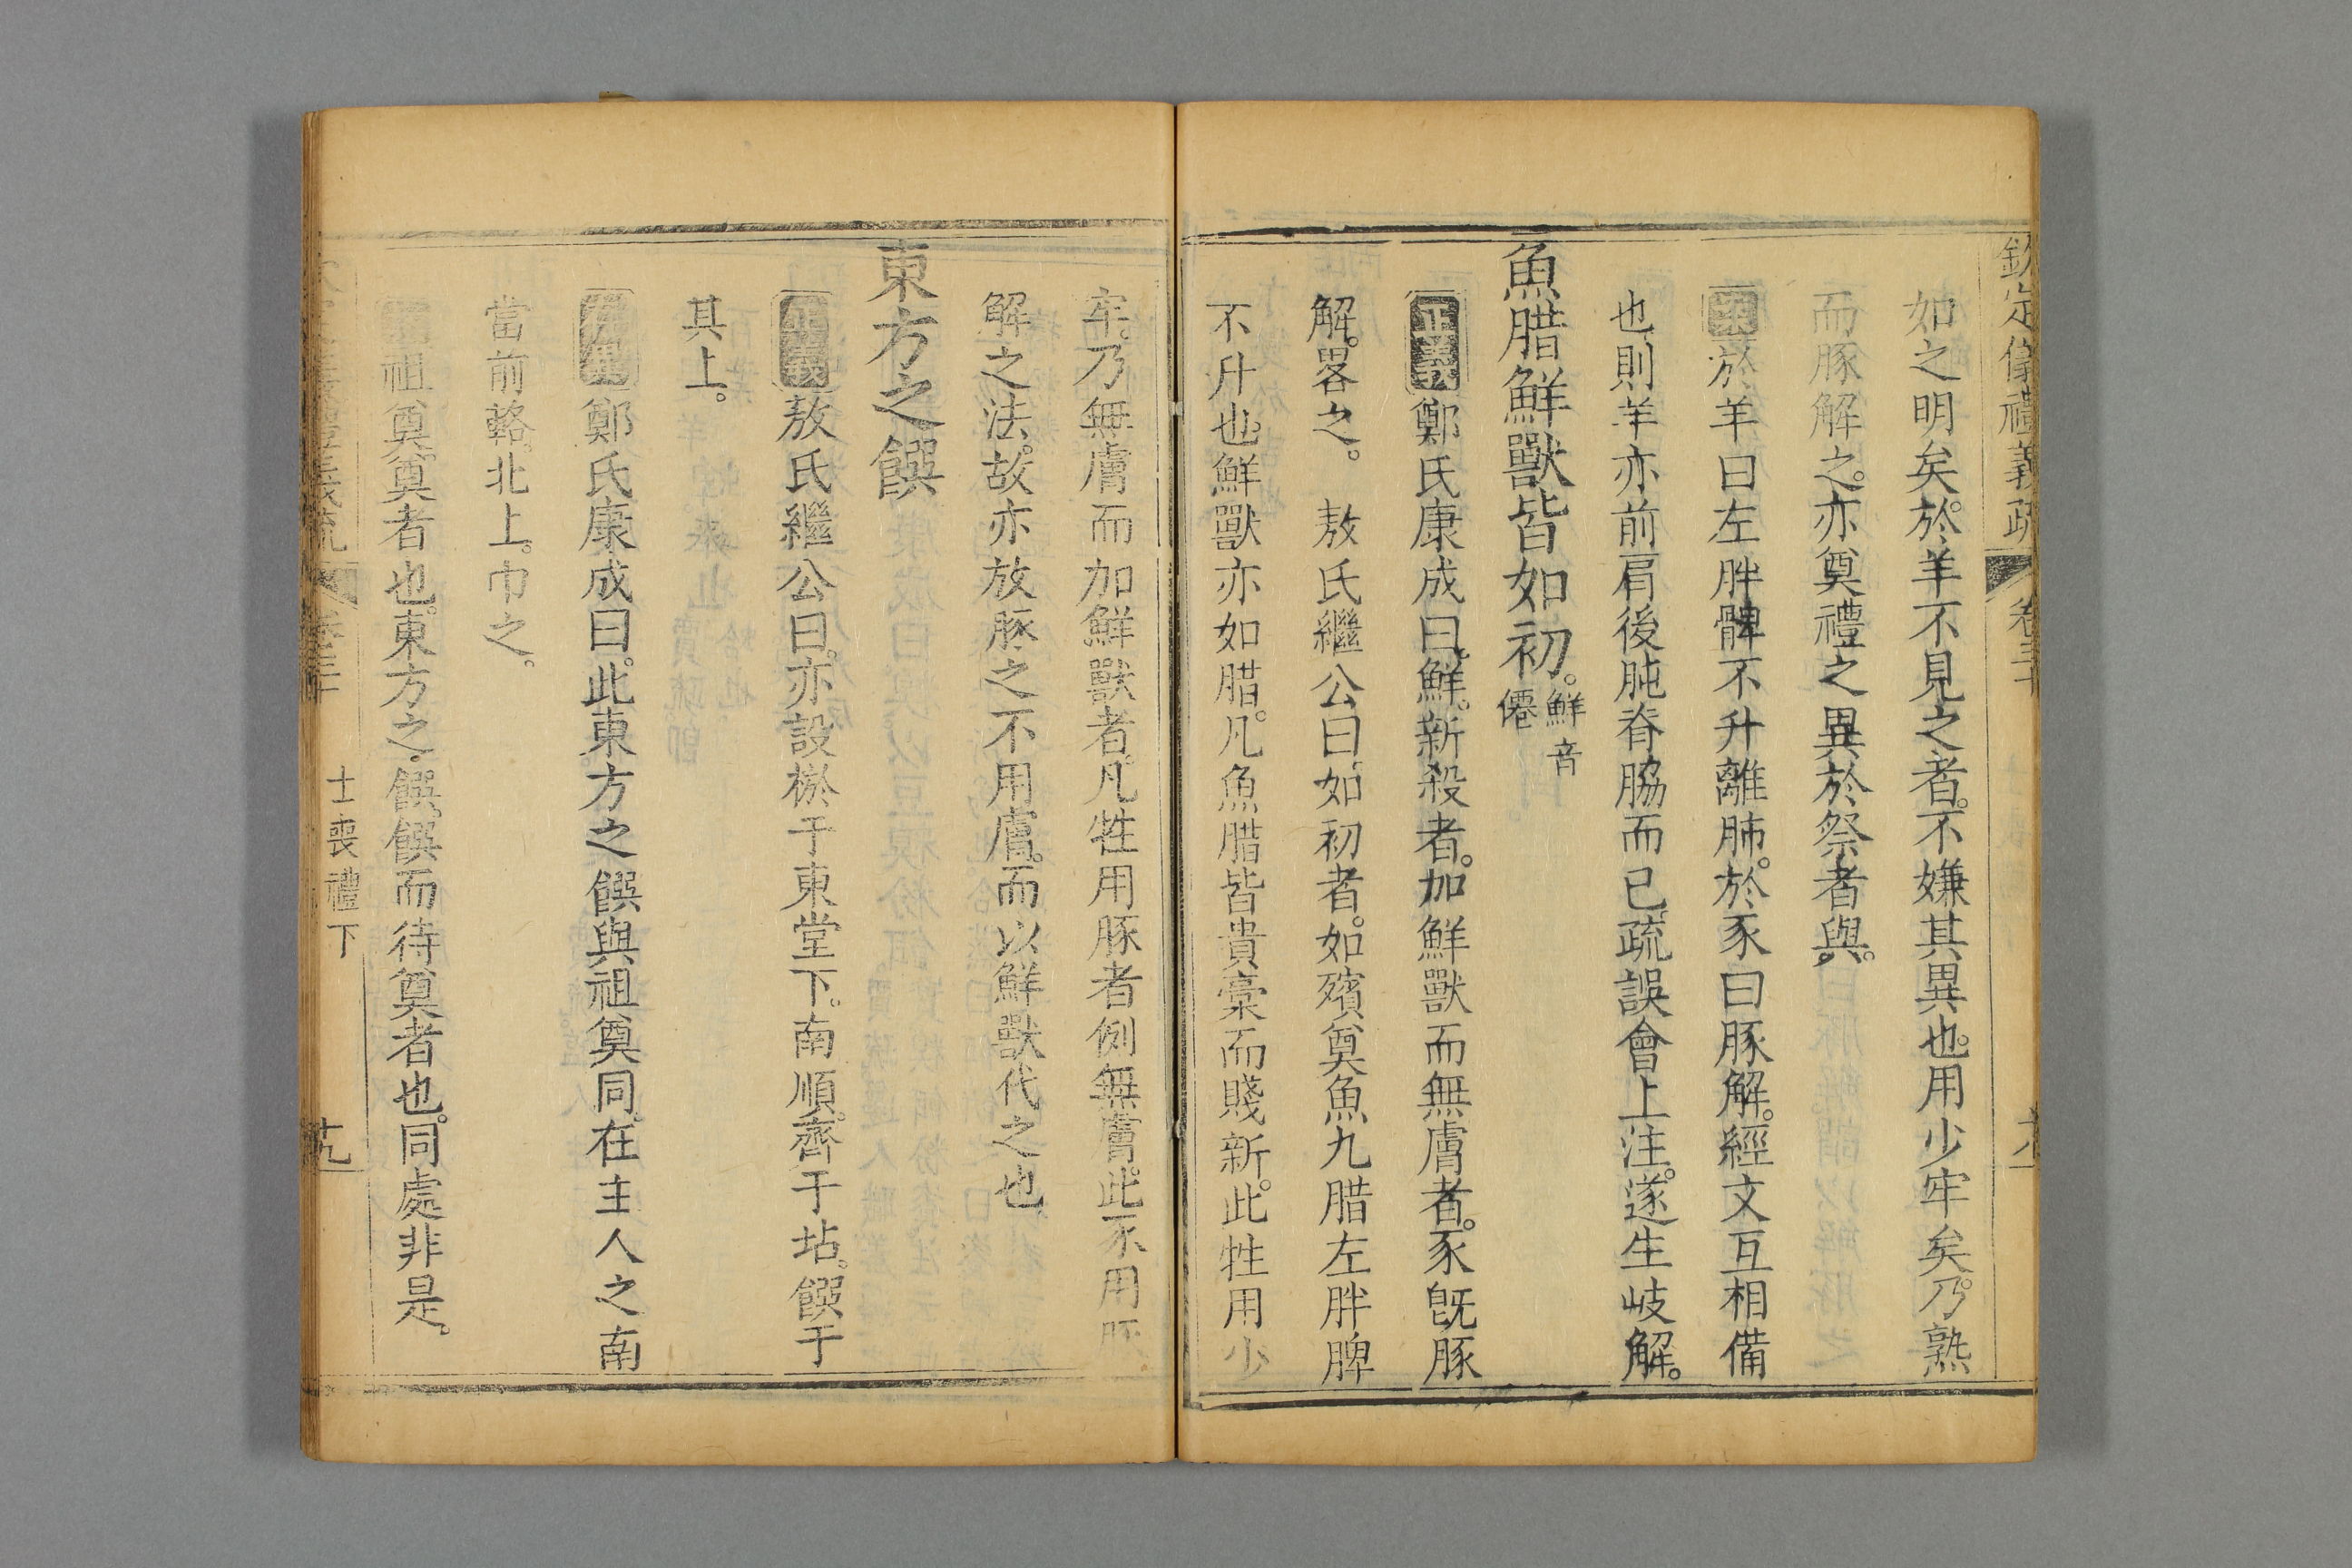 欽定儀禮義疏 卷三十
如之明矣。於羊不見之者。不嫌其異也。用少牢矣。乃熟
而豚解之。亦奠禮之異於祭者與。
案於羊曰左胖髀不升離肺。於豕曰豚解。經文互相備
也。則羊亦前肩後肫脊脇而已。疏誤會上注。遂生歧解。
魚腊鮮獸皆如初。鮮音僊
正義鄭氏康成曰。鮮。新殺者。加鮮獸而無膚者。豕旣豚
解。畧之。 敖氏繼公曰。如初者。如殯奠魚九腊左胖脾
不升也。鮮獸亦如腊。凡魚腊皆貴槀而賤新。此牲用少
牢。乃無膚而加鮮獸者。凡牲用豚者例無膚。此豕用豚
解之法。故亦放豚之不用膚。而以鮮獸代之也
東方之饌
正義敖氏繼公曰。亦設棜于東堂下。南順。齊于坫。饌于
其上。
鄭氏康成曰。此東方之饌與祖奠同。在主人之南
當前輅。北上。巾之。
祖奠。奠者也。東方之饌。饌而待奠者也。同處非是。
士喪禮下
十九